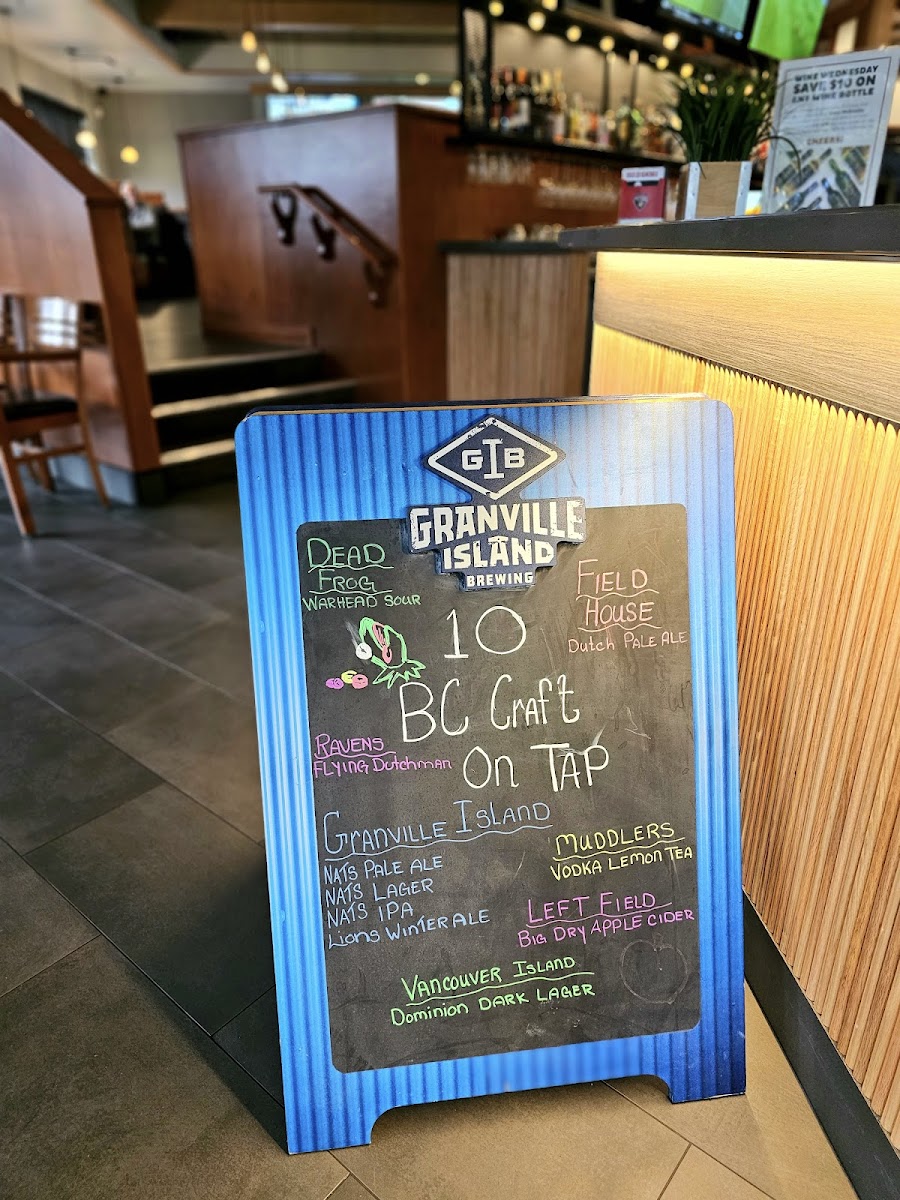 WINE WEDNESDAY
SAVE $10 ON
ANY WINE BOTTLE
CHEERS!
GIB
GRANVILLE
ISLAND
BREWING
DEAD
FROG
WARHEAD SOUR
FIELD
HOUSE
Dutch PALE ALE
10
BC Craft
On TAP
RAVENS
FLYING Dutchman
GRANVILLE ISLAND
NATS PALE ALE
NATS LAGER
NATS IPA
Lions WINTER ALE
MUDDLERS
VODKA LEMON TEA
LEFT FIELD
BIG DRY APPLE CIDER
VANCOUVER ISLAND
Dominion DARK LAGER